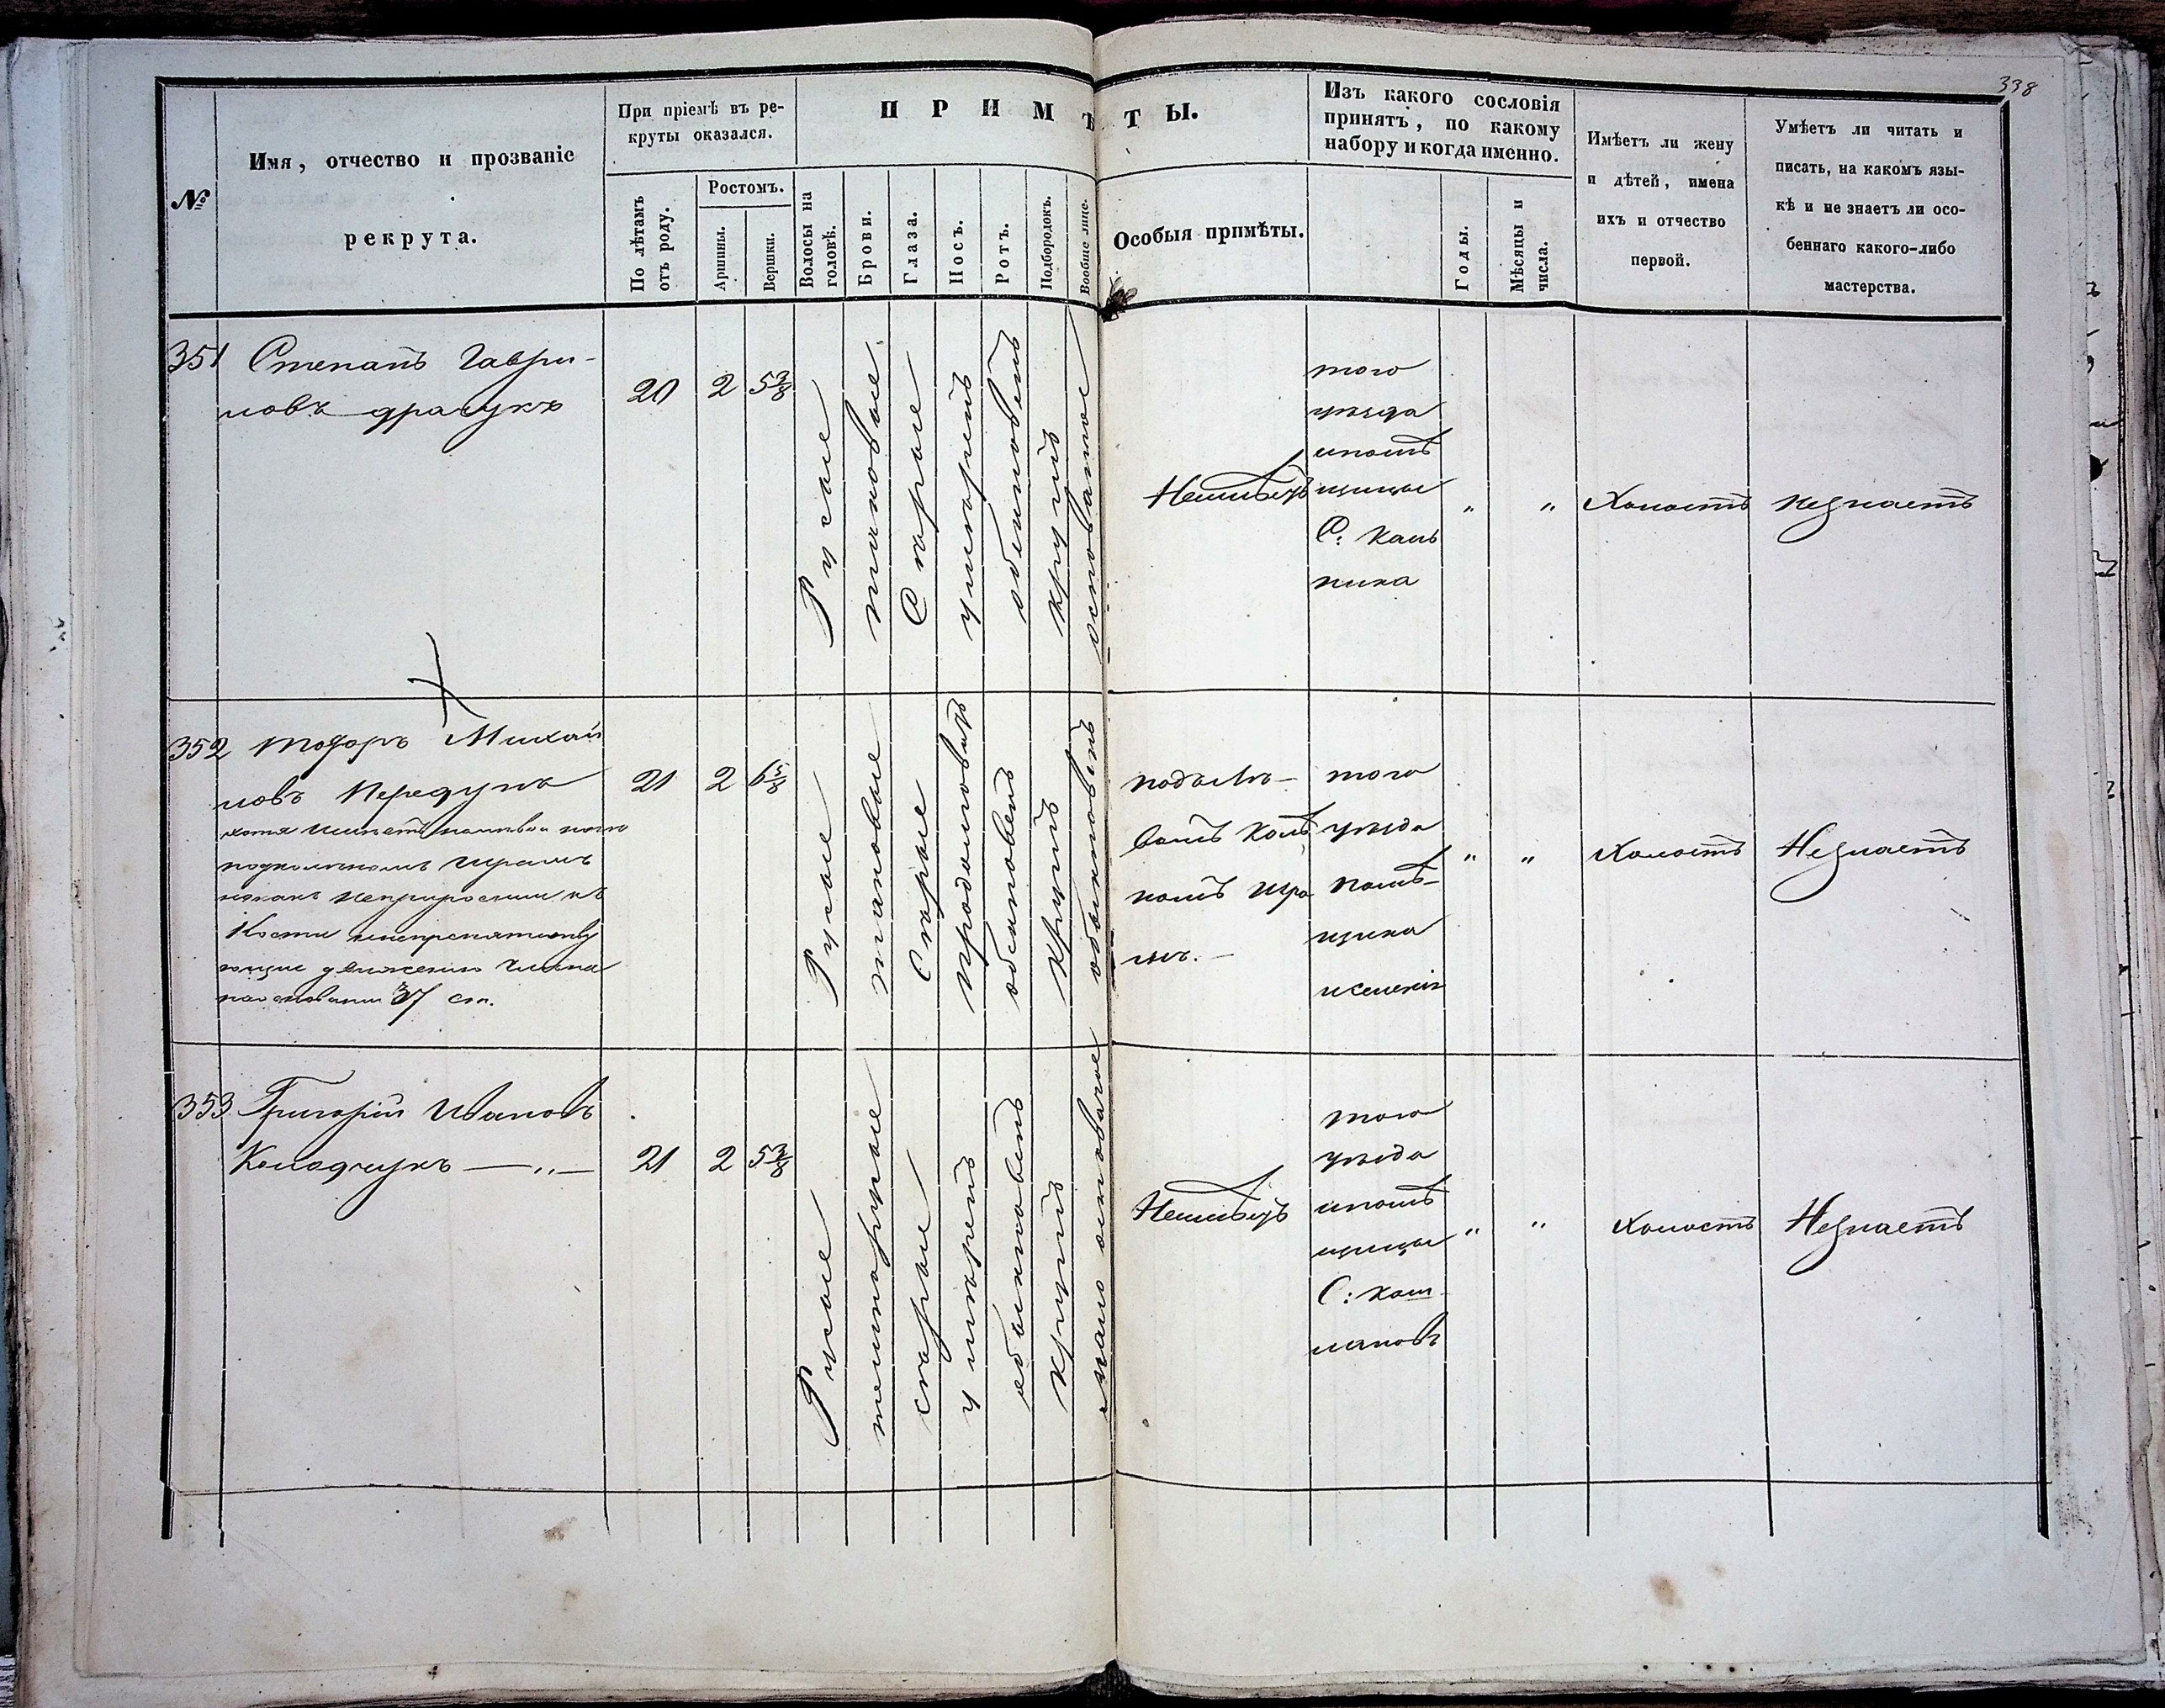 338
№
Имя, отчество и прозваніе
рекрута.
При пріемѣ въ ре-
круты оказался.
По лѣтамъ
отъ роду.
Ростомъ.
Аршины.
Вершки.
ПРИМѢТЫ.
Волосы на
головѣ.
Брови.
Глаза.
Носъ.
Ротъ.
Подбородокъ.
Вообще лице.
Особыя примѣты.
Изъ какого сословія
принятъ, по какому
набору и когда именно.
Годы.
Мѣсяцы и
числа.
Имѣетъ ли жену
и дѣтей, имена
ихъ и отчество
первой.
Умѣетъ ли читать и
писать, на какомъ язы-
кѣ и не знаетъ ли осо-
беннаго какого-либо
мастерства.
351
Степанъ Гаври-
ловъ
20
2
5 3/8
Русые
таковые
Сѣрые
умѣренъ
обыкновенъ
круглъ
осповатое
Неимѣетъ
того
уѣзда
помѣ
щицы
С:
"
"
Холостъ
Незнаетъ
352
Тодоръ Михай
ловъ
хотя имѣетъ
Кости
движенію члена
на основаніи 37 ст.
21
2
6 5/8
Русые
таковые
Сѣрые
продолговатъ
обыкновенъ
Круглъ
обыкновенъ
подълѣ-
вымъ колѣ
номъ шра
мъ.
того
уѣзда
Помѣ-
щика
"
"
Холостъ
Незнаетъ
353
Григорій Ивановъ
Колодчукъ — „ —
21
2
5 3/8
Русые
темнорусые
сѣрые
умѣренъ
обыкновенъ
Круглъ
мало осповатое
Неимѣетъ
того
уѣзда
помѣ
щицы
С:
"
"
Холостъ
Незнаетъ